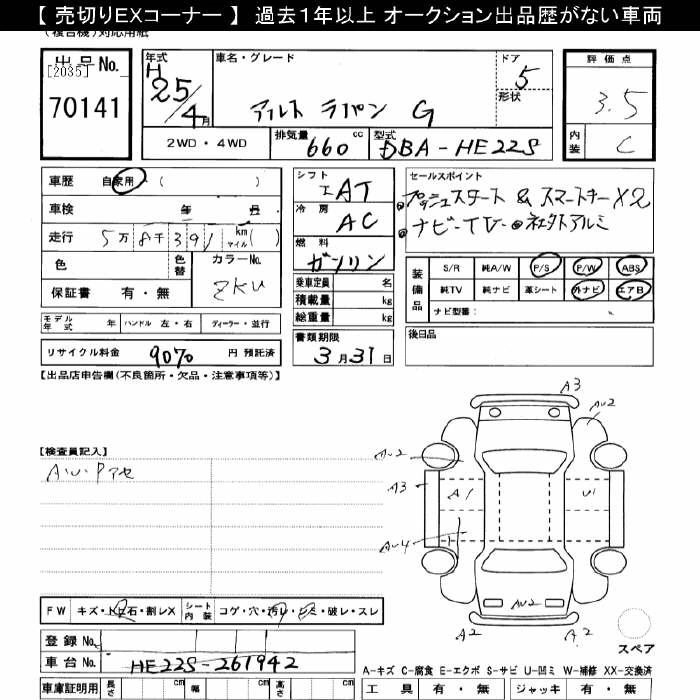 【 売切りEXコーナー 】 過去１年以上 オークション出品歴がない車両
(複合機)対応用紙
出品No. [2035]
70141
年式 H 25/4月
車名・グレード
アルト ラパン G
ドア 5
形状
評価点
3.5
内装 C
2WD・4WD
排気量 660 cc
型式 DBA-HE22S
車歴 自家用・( )
車検 年 月
走行 5万8千391 km マイル( )
色
色替
カラーNo. ZKU
保証書 有・無
シフト AT
冷房 AC
燃料 ガソリン
乗車定員 名
積載量 kg
総重量 kg
書類期限
3月31日
セールスポイント
プッシュスタート & スマートキーX2
ナビ-TV- 社外アルミ
装備品
S/R 純A/W P/S P/W ABS
純TV 純ナビ 革シート 外ナビ エアB
ナビ型番:
モデル年式 年 ハンドル 左・右 ディーラー・並行
リサイクル料金 9070 円 預託済
後日品
【出品店申告欄(不良箇所・欠品・注意事項等)】
【検査員記入】
A・U・Pアセ
A3
AU2
AU2
A3
A1
U1
AU4
AU2
A2
A2
スペア
FW キズ・トビ石・割レX
シート内装 コゲ・穴・汚レ・シミ・破レ・スレ
登録No.
車台No. HE22S-261942
車庫証明用 長さ cm 幅 cm 高さ cm
A-キズ C-腐食 E-エクボ S-サビ U-凹ミ W-補修 XX-交換済
工具 有・無 ジャッキ 有・無